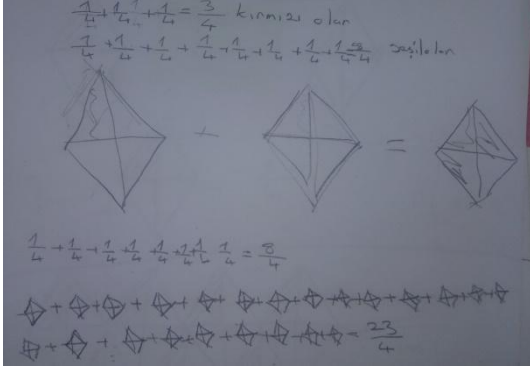 1/4 + 1/4 + 1/4 = 3/4 kırmızı olan
1/4 + 1/4 + 1/4 + 1/4 + 1/4 + 1/4 + 1/4 + 1/4 8/4 yeşilolan
+ =
1/4 + 1/4 + 1/4 + 1/4 + 1/4 + 1/4 + 1/4 1/4 = 8/4
+ + + + + + + + + + + + + +
+ + + + + + + + + = 23/4